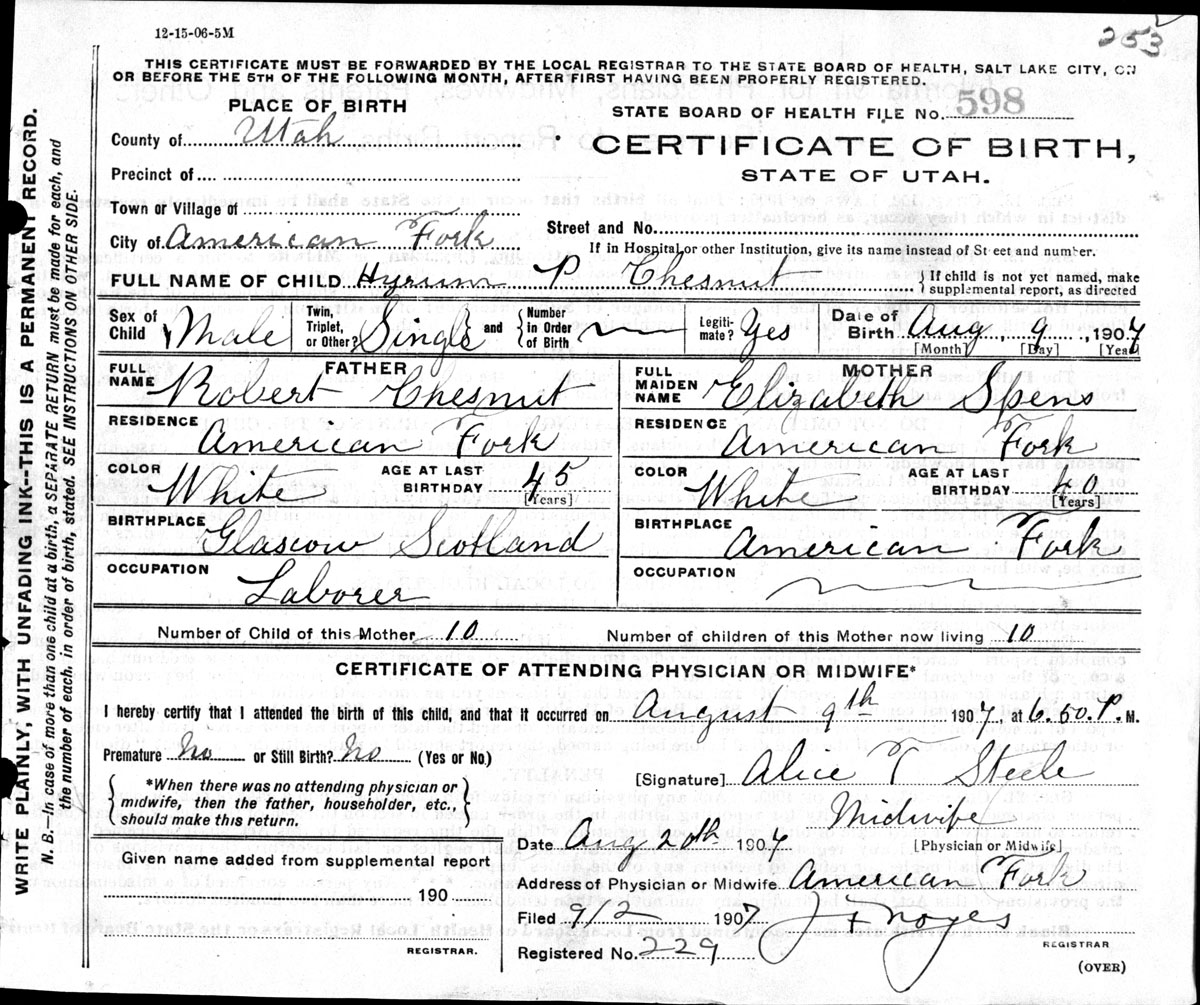 12-15-06-5M
253
THIS CERTIFICATE MUST BE FORWARDED BY THE LOCAL REGISTRAR TO THE STATE BOARD OF HEALTH, SALT LAKE CITY, ON
OR BEFORE THE 5TH OF THE FOLLOWING MONTH, AFTER FIRST HAVING BEEN PROPERLY REGISTERED.
PLACE OF BIRTH
County of Utah
Precinct of
Town or Village of
City of American Fork
STATE BOARD OF HEALTH FILE No. 598
CERTIFICATE OF BIRTH,
STATE OF UTAH.
Street and No.
If in Hospital or other Institution, give its name instead of Street and number.
FULL NAME OF CHILD Hyrum P Chesnut { If child is not yet named, make supplemental report, as directed
Sex of Child Male Twin, Triplet, or Other? Single and Number in Order of Birth Legiti-mate? Yes Date of Birth Aug 9, 1907
[Month] [Day] [Year]
FATHER
FULL NAME Robert Chesnut
RESIDENCE American Fork
COLOR White AGE AT LAST BIRTHDAY 45 [Years]
BIRTHPLACE Glascow Scotland
OCCUPATION Laborer
MOTHER
FULL MAIDEN NAME Elizabeth Spens
RESIDENCE American Fork
COLOR White AGE AT LAST BIRTHDAY 40 [Years]
BIRTHPLACE American Fork
OCCUPATION
Number of Child of this Mother 10 Number of children of this Mother now living 10
CERTIFICATE OF ATTENDING PHYSICIAN OR MIDWIFE*
I hereby certify that I attended the birth of this child, and that it occurred on August 9th 1907, at 6.50. P. M.
Premature No or Still Birth? No (Yes or No.)
*When there was no attending physician or
midwife, then the father, householder, etc.,
should make this return.
[Signature] Alice T Steele
Midwife
[Physician or Midwife]
Date Aug 20th 1907
Given name added from supplemental report
190
REGISTRAR.
Address of Physician or Midwife American Fork
Filed 9/2 1907 J F Noyes
REGISTRAR
Registered No. 229
(OVER)
WRITE PLAINLY, WITH UNFADING INK--THIS IS A PERMANENT RECORD.
N. B.—In case of more than one child at a birth, a SEPARATE RETURN must be made for each, and
the number of each, in order of birth, stated. SEE INSTRUCTIONS ON OTHER SIDE.